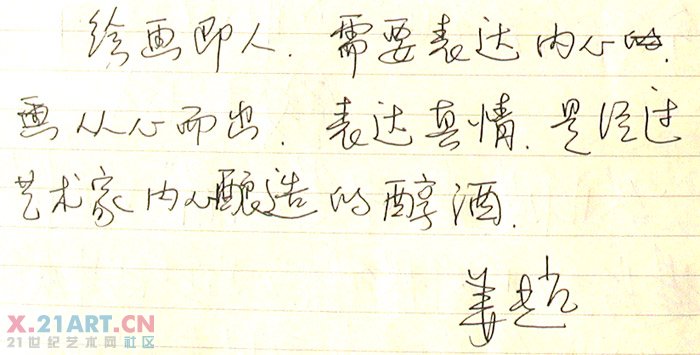 绘画即人.需要表达内心的.
画从心而出.表达真情.是经过
艺术家内心酿造的醇酒.
姜
X.21ART.CN
21世纪艺术网社区